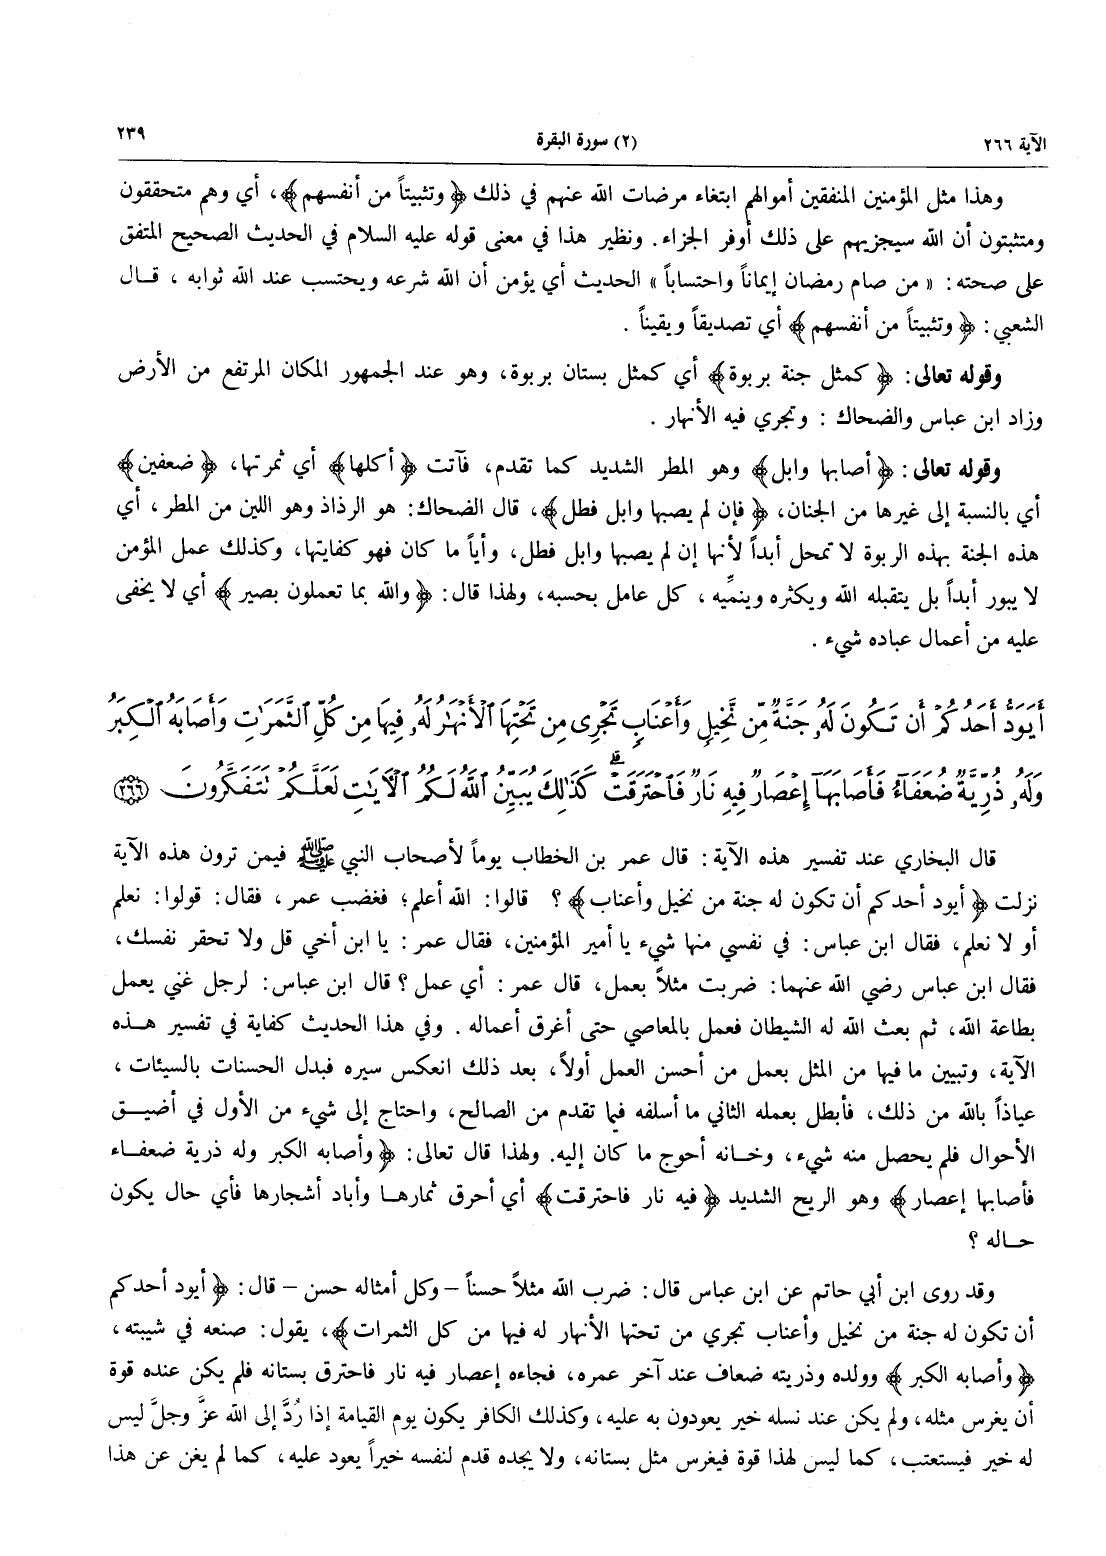 الآية ٢٦٦ (٢) سورة البقرة ٢٣٩
وهذا مثل المؤمنين المنفقين أموالهم ابتغاء مرضات الله عنهم في ذلك ﴿ وتثبيتاً من أنفسهم ﴾، أي وهم متحققون
ومتثبتون أن الله سيجزيهم على ذلك أوفر الجزاء. ونظير هذا في معنى قوله عليه السلام في الحديث الصحيح المتفق
على صحته: « من صام رمضان إيماناً واحتساباً » الحديث أي يؤمن أن الله شرعه ويحتسب عند الله ثوابه ، قــال
الشعبي: ﴿ وتثبيتاً من أنفسهم ﴾ أي تصديقاً ويقيناً .
وقوله تعالى: ﴿ كمثل جنة بربوة ﴾ أي كمثل بستان بربوة، وهو عند الجمهور المكان المرتفع من الأرض
وزاد ابن عباس والضحاك : وتجري فيه الأنهار .
وقوله تعالى: ﴿ أصابها وابل ﴾ وهو المطر الشديد كما تقدم، فآتت ﴿ أكلها ﴾ أي ثمرتها، ﴿ ضعفين ﴾
أي بالنسبة إلى غيرها من الجنان، ﴿ فإن لم يصبها وابل فطل ﴾، قال الضحاك: هو الرذاذ وهو اللين من المطر، أي
هذه الجنة بهذه الربوة لا تمحل أبداً لأنها إن لم يصبها وابل فطل، وأياً ما كان فهو كفايتها، وكذلك عمل المؤمن
لا يبور أبداً بل يتقبله الله ويكثره وينمِّيه ، كل عامل بحسبه، ولهذا قال: ﴿ والله بما تعملون بصير ﴾ أي لا يخفى
عليه من أعمال عباده شيء .
أَيَوَدُّ أَحَدُكُمْ أَن تَكُونَ لَهُۥ جَنَّةٌ مِّن نَّخِيلٍ وَأَعْنَابٍ تَجْرِى مِن تَحْتِهَا ٱلْأَنْهَٰرُ لَهُۥ فِيهَا مِن كُلِّ ٱلثَّمَرَٰتِ وَأَصَابَهُ ٱلْكِبَرُ
وَلَهُۥ ذُرِّيَّةٌ ضُعَفَآءُ فَأَصَابَهَآ إِعْصَارٌ فِيهِ نَارٌ فَٱحْتَرَقَتْ ۗ كَذَٰلِكَ يُبَيِّنُ ٱللَّهُ لَكُمُ ٱلْءَايَٰتِ لَعَلَّكُمْ تَتَفَكَّرُونَ ٢٦٦
قال البخاري عند تفسير هذه الآية: قال عمر بن الخطاب يوماً لأصحاب النبي ﷺ فيمن ترون هذه الآية
نزلت ﴿ أيود أحدكم أن تكون له جنة من نخيل وأعناب ﴾ ؟ قالوا: الله أعلم؛ فغضب عمر ، فقال: قولوا: نعلم
أو لا نعلم، فقال ابن عباس: في نفسي منها شيء يا أمير المؤمنين، فقال عمر: يا ابن أخي قل ولا تحقر نفسك،
فقال ابن عباس رضي الله عنهما: ضربت مثلاً بعمل، قال عمر: أي عمل؟ قال ابن عباس: لرجل غني يعمل
بطاعة الله، ثم بعث الله له الشيطان فعمل بالمعاصي حتى أغرق أعماله . وفي هذا الحديث كفاية في تفسير هــذه
الآية، وتبيين ما فيها من المثل بعمل من أحسن العمل أولاً، بعد ذلك انعكس سيره فبدل الحسنات بالسيئات ،
عياذاً بالله من ذلك، فأبطل بعمله الثاني ما أسلفه فيما تقدم من الصالح، واحتاج إلى شيء من الأول في أضيــق
الأحوال فلم يحصل منه شيء، وخــانه أحوج ما كان إليه. ولهذا قال تعالى: ﴿ وأصابه الكبر وله ذرية ضعفــاء
فأصابها إعصار ﴾ وهو الريح الشديد ﴿ فيه نار فاحترقت ﴾ أي أحرق ثمارهــا وأباد أشجارها فأي حال يكون
حــاله ؟
وقد روى ابن أبي حاتم عن ابن عباس قال: ضرب الله مثلاً حسناً – وكل أمثاله حسن – قال: ﴿ أيود أحدكم
أن تكون له جنة من نخيل وأعناب تجري من تحتها الأنهار له فيها من كل الثمرات ﴾، يقول: صنعه في شيبته،
﴿ وأصابه الكبر ﴾ وولده وذريته ضعاف عند آخر عمره، فجاءه إعصار فيه نار فاحترق بستانه فلم يكن عنده قوة
أن يغرس مثله، ولم يكن عند نسله خير يعودون به عليه، وكذلك الكافر يكون يوم القيامة إذا رُدَّ إلى الله عزَّ وجلَّ ليس
له خير فيستعتب، كما ليس لهذا قوة فيغرس مثل بستانه، ولا يجده قدم لنفسه خيراً يعود عليه، كما لم يغن عن هذا